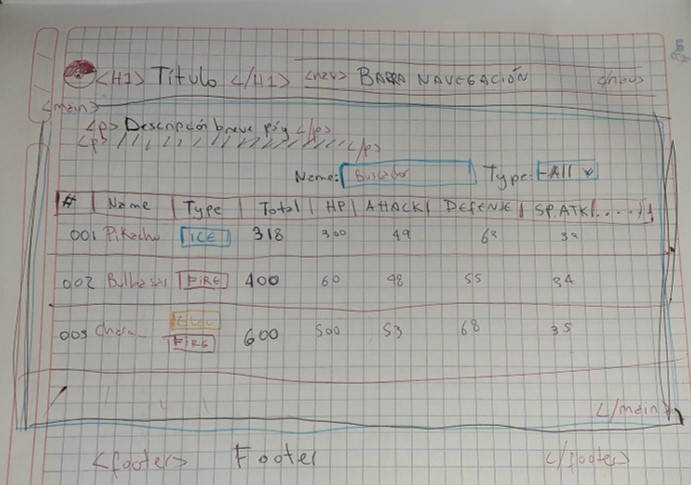 <H1> Título </H1> <nav> BARRA NAVEGACIÓN </nav>
<main>
<p> Descripción breve </p>
<p> </p>
Name: Buscador Type: -All
# | Name | Type | Total | HP | Attack | DEFENSE | SP.ATK | ....
001 Pikachu ICE 318 300 49 39
002 FIRE 400 60 48 55 34
003 FIRE 600 500 53 68 35
</main>
<footer> Footer </footer>